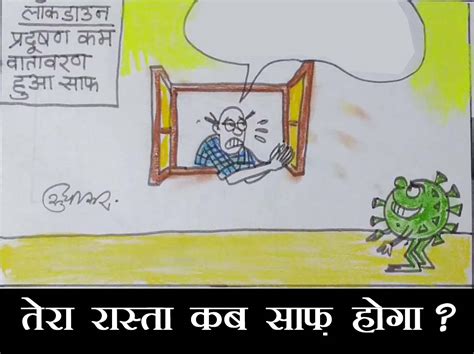 लॉकडाउन
प्रदूषण कम
वातावरण
हुआ साफ
तेरा रास्ता कब साफ़ होगा ?